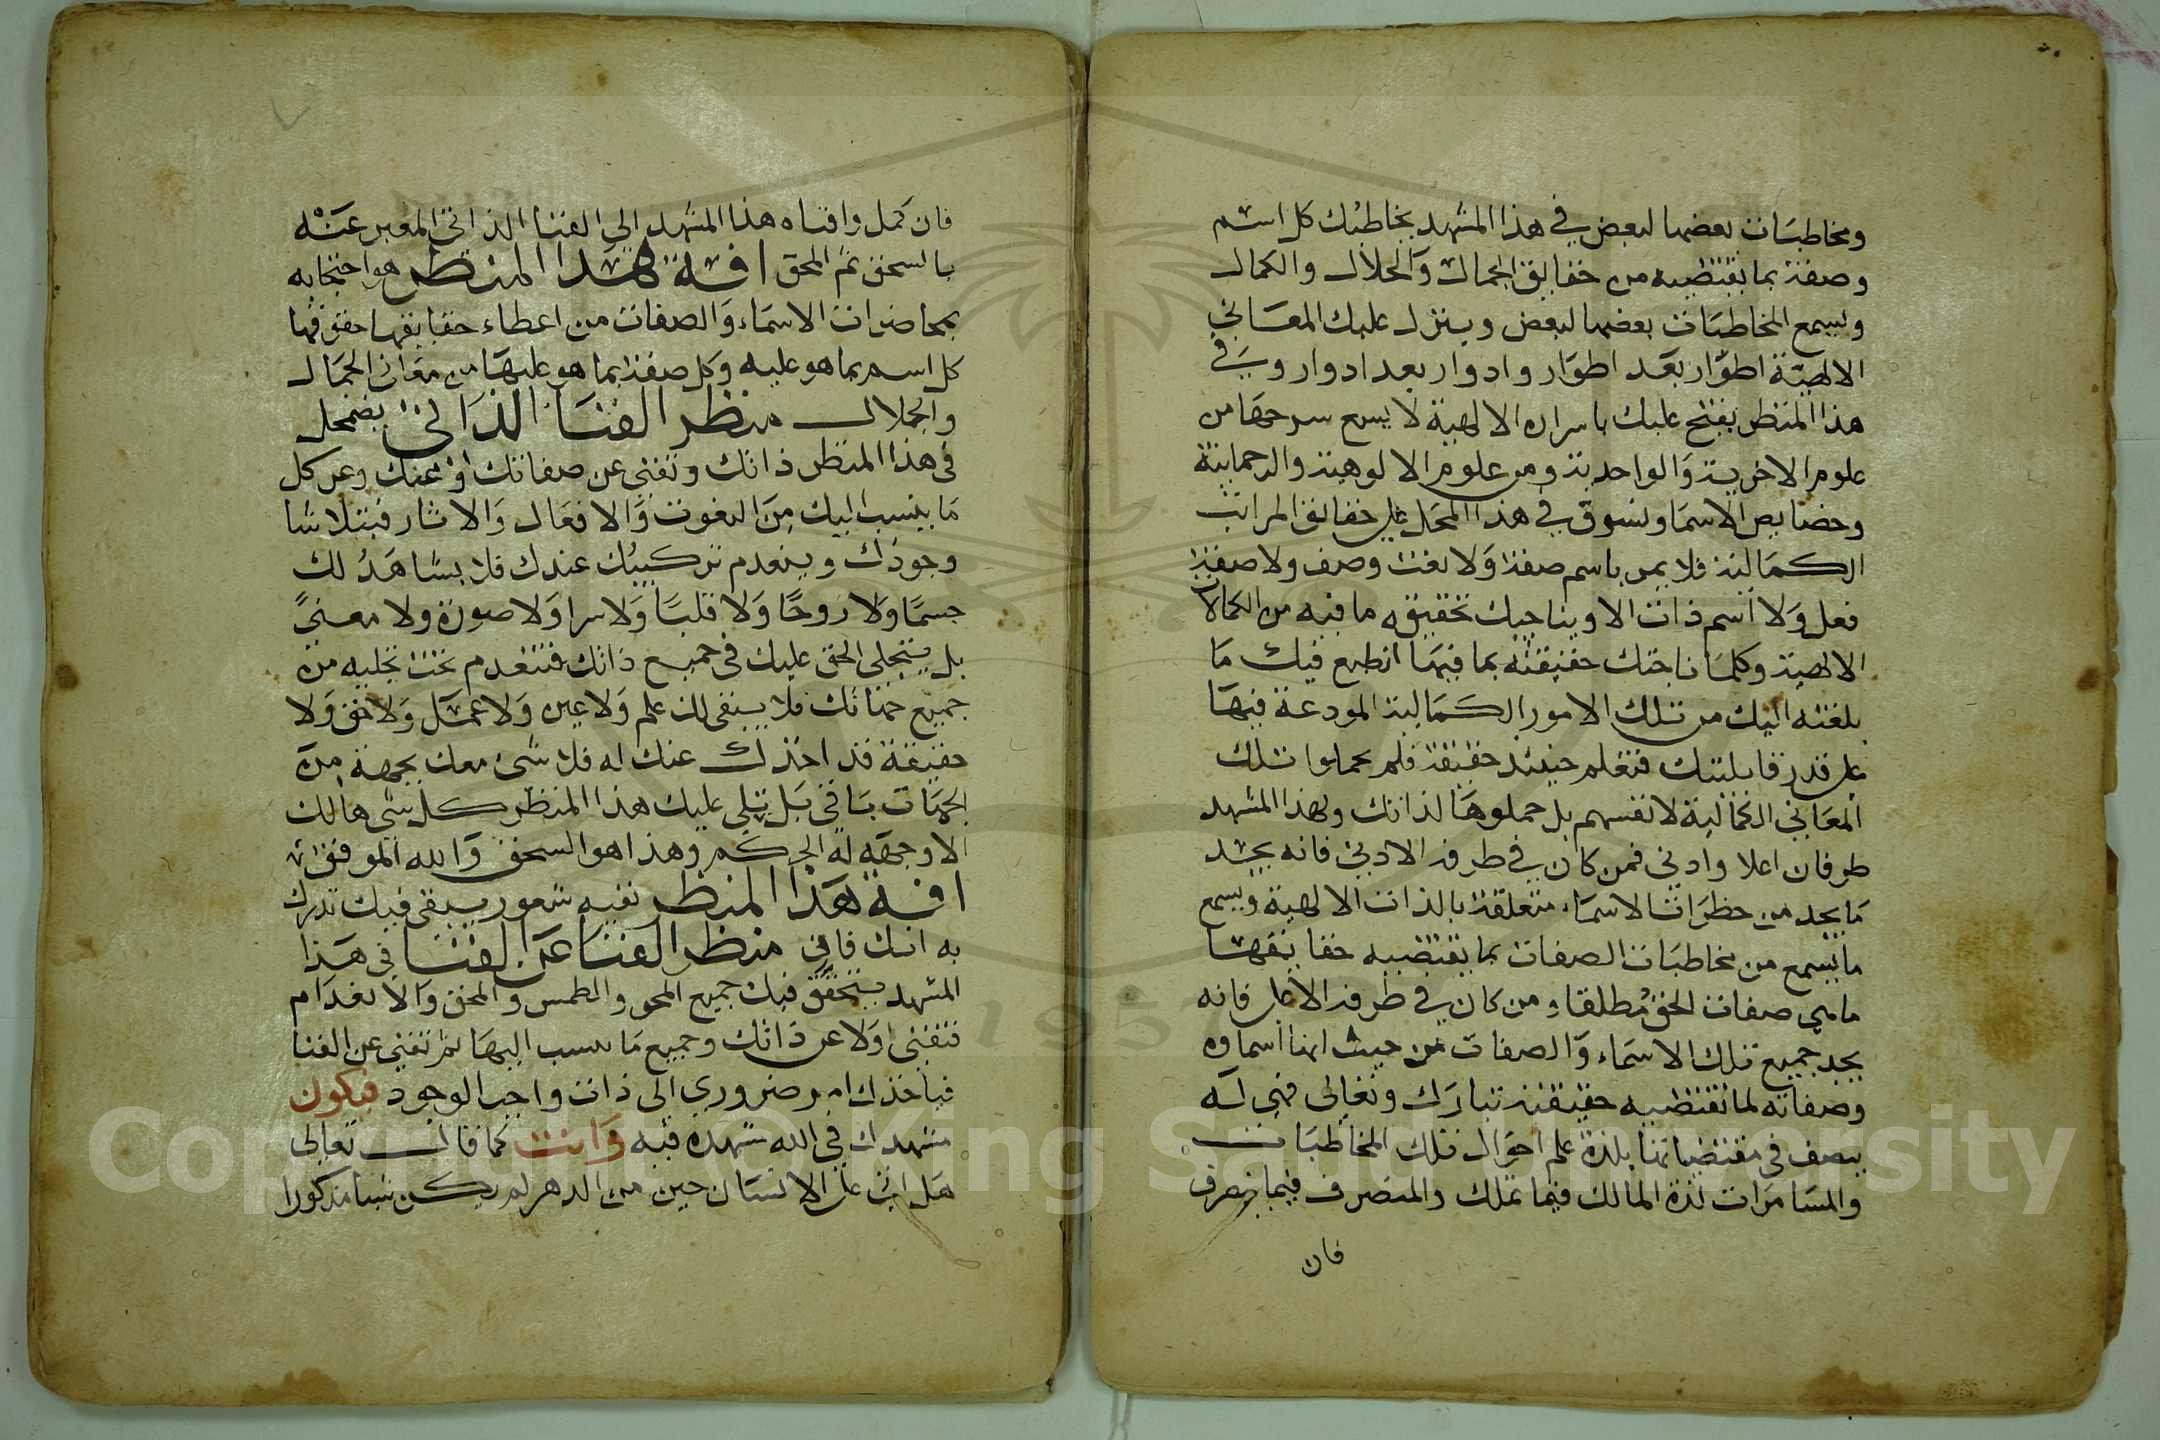 ومخاطبات بعضها لبعض في هذا المشهد يخاطبك كل اسم
وصفة بما يقتضيه من حقايق الجمال والجلال والكمال
وتسمع المخاطبات بعضها لبعض وينزل عليك المعاني
الالهية اطوار بعد اطوار وادوار بعد ادوار وفي
هذا المنظر يفتح عليك باسراره الالهية لا يسع سرحها من
علوم الاخرية والواحدية ومن علوم الالوهية والرحمانية
وخصايص الاسما وتسوق في هذا المحل على حقايق المراتب
الكمالية فلا يمر باسم صفة ولا نعت وصف ولا صفة
فعل ولا اسم ذات الا ويناجيك تحقيقه ما فيه من الكمالات
الالهية وكلما ناجتك حقيقته بما فيها انطبع فيك ما
بلغته اليك من تلك الامور الكمالية المودعة فيها
على قدر قابليتك فتعلم حينئذ حقيقة فلم يحملوا تلك
المعاني الكمالية لانفسهم بل حملوها لذاتك ولهذا المشهد
طرفان اعلا وادنى فمن كان في طرفه الادنى فانه يجد
ما يجد من حظرات الاسماء متعلقة بالذات الالهية ويسمع
ما يسمع من مخاطبات الصفات بما يقتضيه حقايقها
ما هي صفات الحق مطلقا ومن كان في طرفه الاعلى فانه
يجد جميع تلك الاسماء والصفات من حيث انها اسماوه
وصفاته لما تقتضيه حقيقته تبارك وتعالى فهي له
يتصف في مقتضياتها بلذة علم احوال تلك المخاطبات
والمسامرات لذة المالك فيما تملك والمتصرف فيما يتصرف
فان
فان كمل وافناه هذا المشهد الى الفنا الذاتي المعبر عنه
بالسحق ثم المحق افة هذا المنظر هو احتجابه
بمحاضرات الاسماء والصفات من اعطاء حقايقها حقوقها
كل اسم بما هو عليه وكل صفة بما هو عليها من معاني الجمال
والجلال منظر الفنا الذاتي يضمحل
في هذا المنظر ذاتك وتفنى عن صفاتك وعنك وعن كل
ما ينسب اليك من النعوت والافعال والاثار فيتلاشا
وجودك وينعدم تركيبك عندك فلا يشاهد لك
جسما ولا روحا ولا قلبا ولا سرا ولا صورة ولا معنى
بل يتجلى الحق عليك في جميع ذاتك فتنعدم تحت تجليه من
جميع جهاتك فلا يبقى لك علم ولا عين ولا عمل ولا حق ولا
حقيقة قد اخذك عنك له فلا شيء معك بجهة من
الجهات باقي بل يتلى عليك هذا المنظر كل شي هالك
الا وجهه له الحكم وهذا هو السحق والله الموفق
افة هذا المنظر نفيه شعور يبقى فيك تدرك
به انك فاني منظر الفنا عن الفنا في هذا
المشهد يتحقق فيك جميع المحو والطمس والمحق والانعدام
فتفنى اولا عن ذاتك وجميع ما ينسب اليها ثم تفنى عن الفنا
فياخذك امر ضروري الى ذات واجب الوجود فيكون
مشهدك في الله شهده فيه وانت كما قال تعالى
هل اتى على الانسان حين من الدهر لم يكن شيا مذكورا